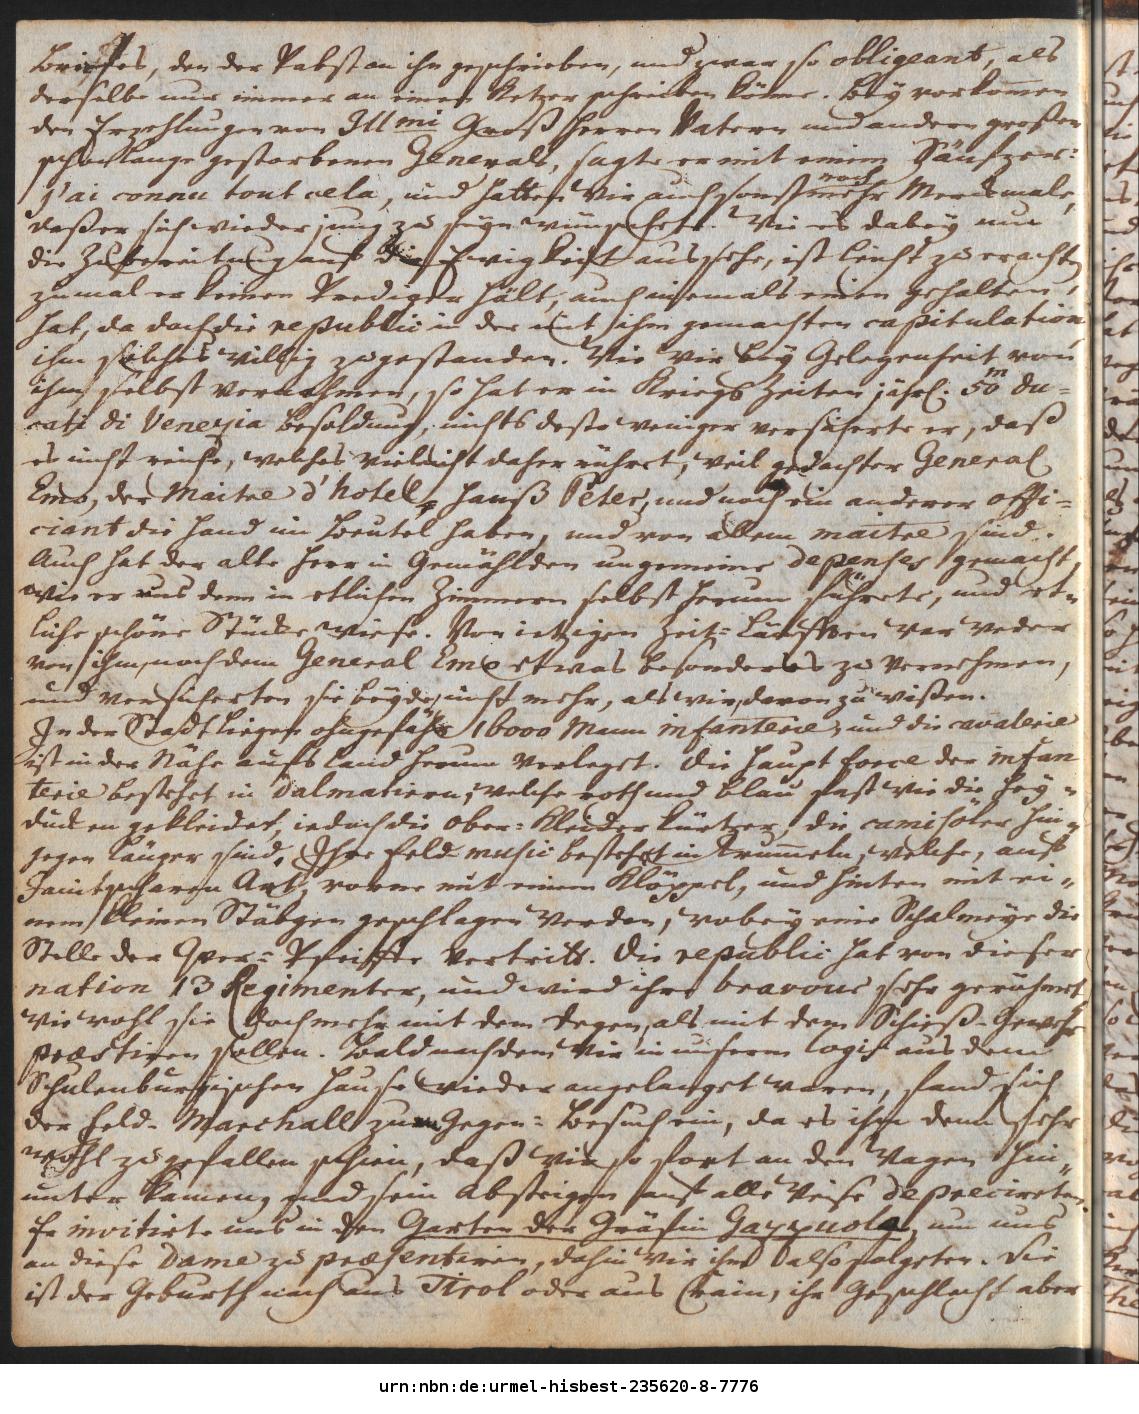 Briefes, den der Pabst an ihn geschrieben, und zwar so obligeant, als
derselbe nur immer an einen Ketzer schreiben köñe. Bey vorkom̃en
den Erzehlungen von Illmi Groß Herren Vatern und andern großen
schon lange gestorbenen Generals, sagte er mit einem Säufzer:
j'ai connu tout cela, und hatten wir auch sonst noch mehr Merckmale,
daß er sich wieder jung zu seyn wünschete. Wie es dabey nun
die Zubereitung auf die Ewigkeit aussehe, ist leicht zu erachten,
zumal er keinen Prediger hält, auch niemals einen gehalten
hat, da doch die republic in der mit ihm gemachten capitulation
ihm solches willig zugestanden. Wie wir bey Gelegenheit von
ihm selbst vernahmen, so hat er in Kriegs Zeiten jährl. 50 m du-
cati di Venezia Besoldung; nichts desto weniger versicherte er, daß
es nicht reiche, welches vieleicht daher rühret, weil gedachter General
Emo, der Maitre d'hotel, Hanß Peter, und noch ein anderer offi-
ciant die Hand im Beutel haben, und von allem maitre sind.
Auch hat der alte Herr in Gemählden ungemeine depenses gemacht,
wie er uns denn in etlichen Zimmern selbst herum führete, und et-
liche schöne Stücke wiese. Von ietzigen Zeit-Läufften war weder
von ihm, noch dem General Emo etwas besonderes zu vernehmen,
und versicherten sie beyde, nicht mehr, als wir, davon zu wißen.
In der Stadt liegen ohngefähr 16000 Mann infanterie, und die cavalerie
ist in der Nähe aufs Land herum verleget. Die Haupt force der infan
terie bestehet in Dalmatiern, welche roth und blau fast wie die Hey-
ducken gekleidet, iedoch die Ober-Kleider kürtzer, die camisöler hin-
gegen länger sind. Ihre Feld music bestehet in Trum̃eln, welche, auf
Janitscharen Art, vorne mit einem Klöppel, und hinten mit ei-
nem kleinen Stäbgen geschlagen werden, wobey eine Schalmeye die
Stelle der Qver-Pfeiffe vertritt. Die republic hat von dieser
nation 13 Regimenter, und wird ihre bravour sehr gerühmet,
wiewohl sie doch mehr mit dem Degen, als mit dem Schieß-Gewehr
præstiren sollen. Bald nachdem wir in unserm logis aus dem
Schulenburgischen Hause wieder angelanget waren, fand sich
der Feld-Marchall zum Gegen-Besuch ein, da es ihm denn sehr
wohl zu gefallen schien, daß wir so fort an den Wagen hin-
unter kamen, und sein Absteigen auf alle Weise deprecireten.
Er invitirte uns in den Garten der Gräfin Gazzuola, um uns
an diese Dame zu præsentiren, dahin wir ihm also folgeten. Sie
ist der Geburth nach aus Tirol oder aus Crain, ihr Geschlecht aber
urn:nbn:de:urmel-hisbest-235620-8-7776